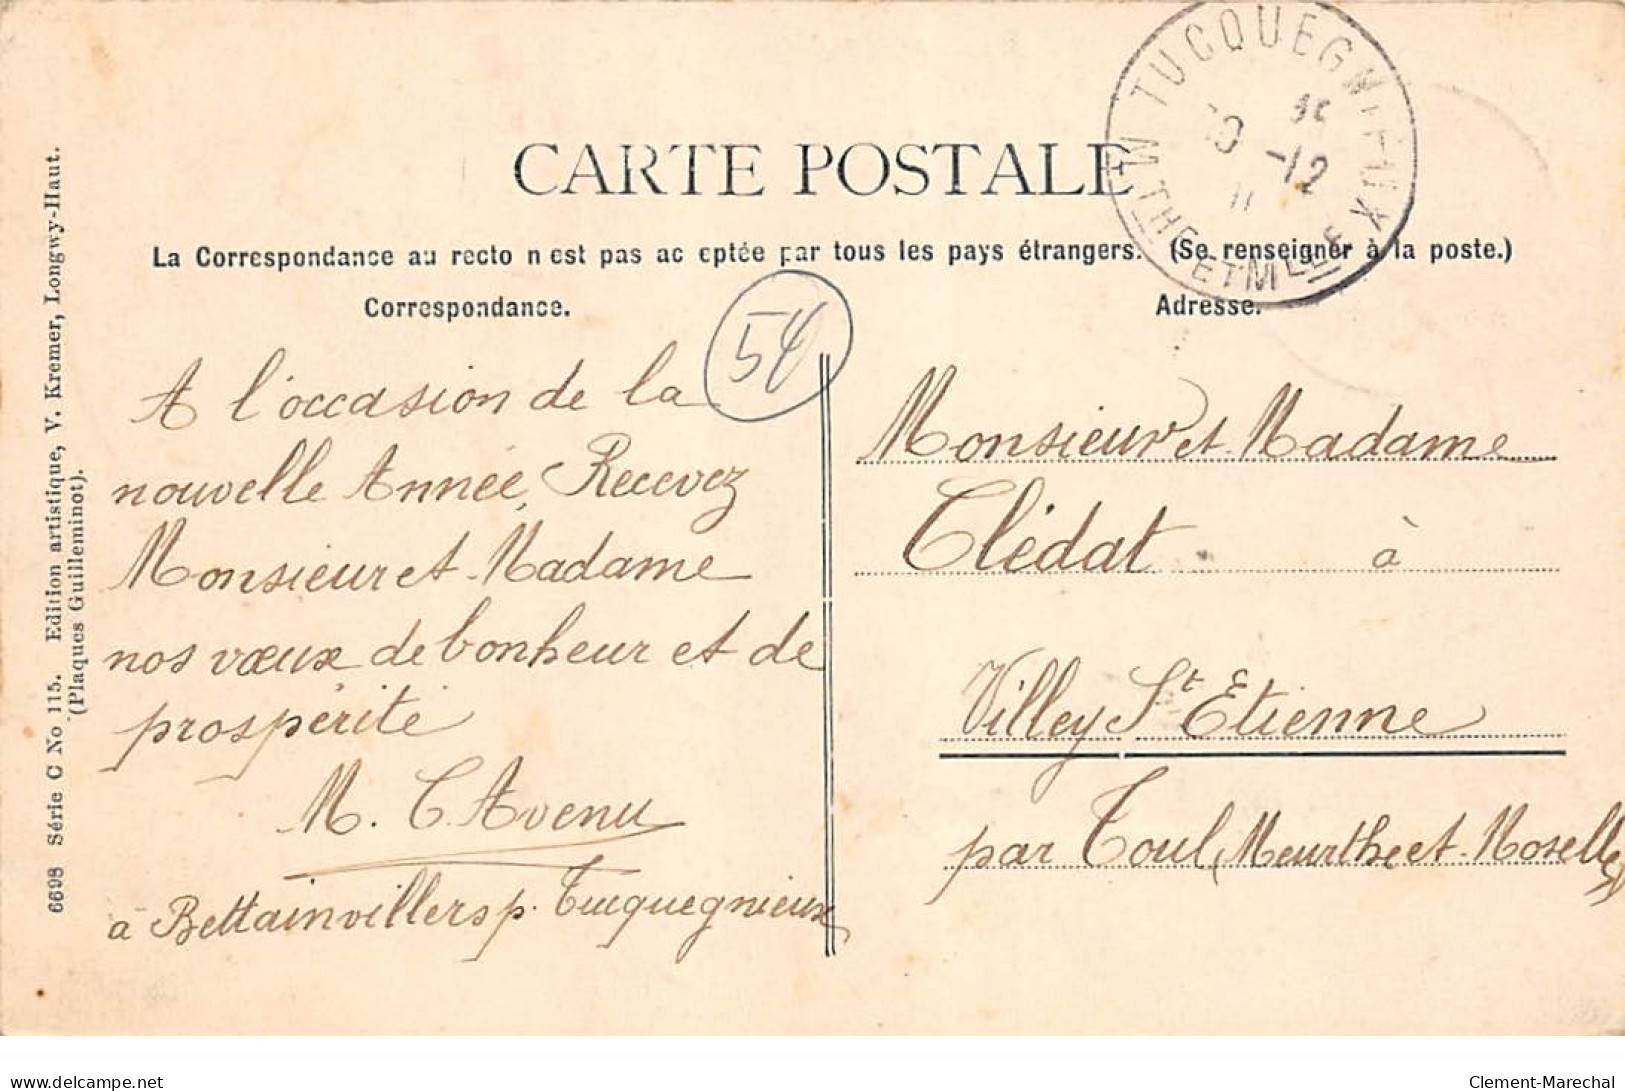 CARTE POSTALE
TUCQUEGNIEUX
MTHE ET MLLE
15
30 -12
11
La Correspondance au recto n est pas ac eptée par tous les pays étrangers. (Se renseigner à la poste.)
Correspondance.
Adresse.
54
A l'occasion de la
nouvelle Année, Recevez
Monsieur et Madame
nos vœux de bonheur et de
prospérité
M. C. Avenu
à Bettainvillers p. Tucquegnieux
Monsieur et Madame
Clédat à
Villey St Etienne
par Toul (Meurthe et Moselle)
6698 Série C No 115. Edition artistique, V. Kremer, Longwy-Haut.
(Plaques Guilleminot).
delcampe.net
Clement-Marechal